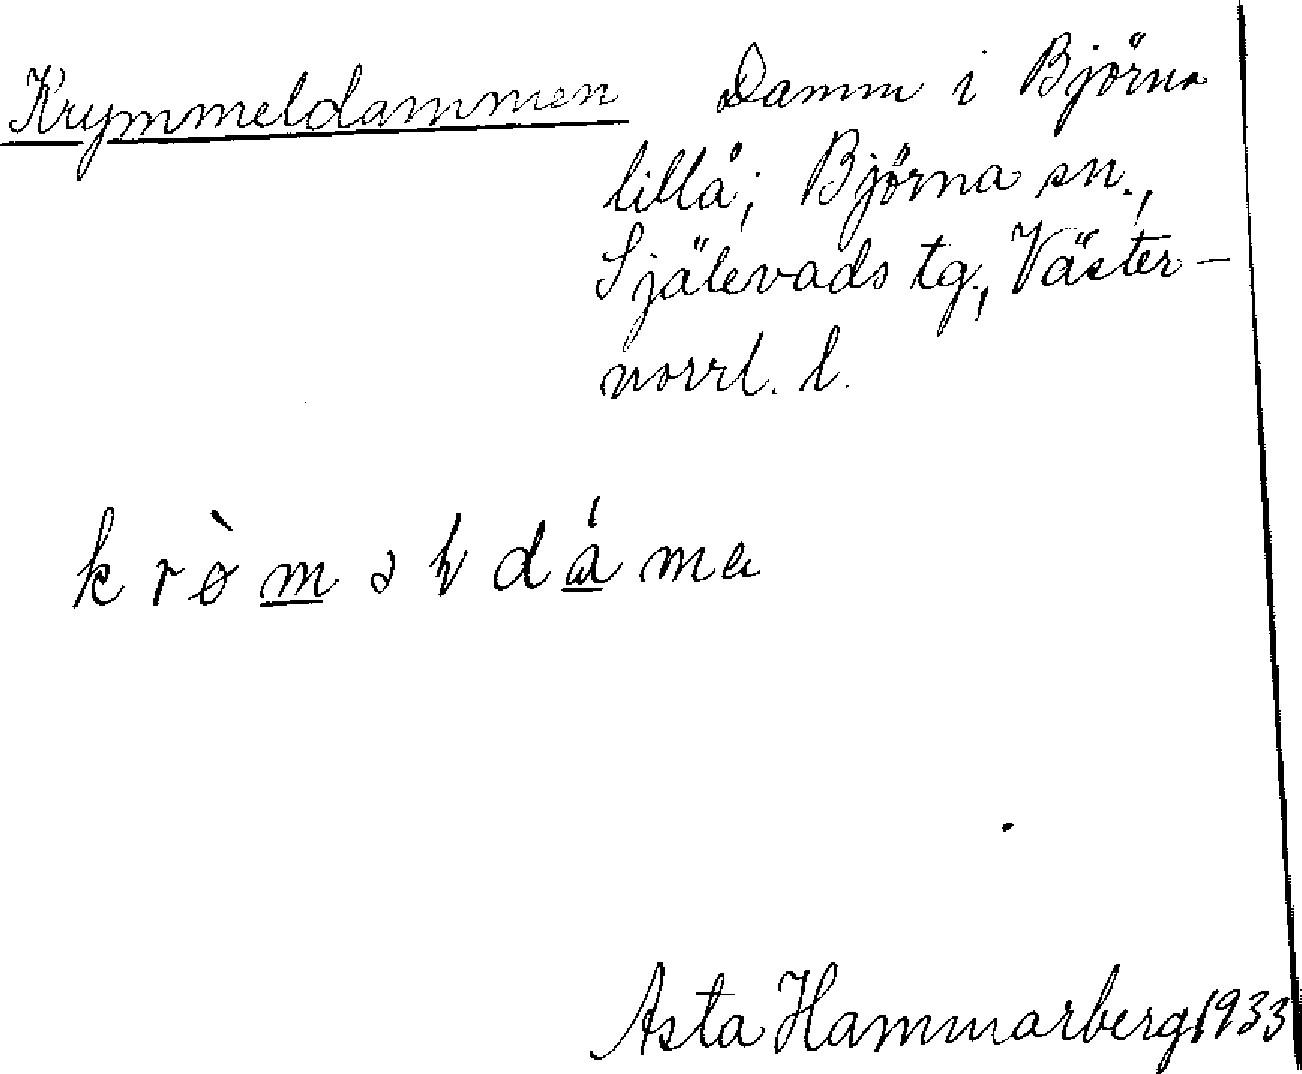 Krymmeldammen Damm i Björna
lillå; Björna sn.,
Själevads tg., Väster-
norrl. l.
Asta Hammarberg 1933